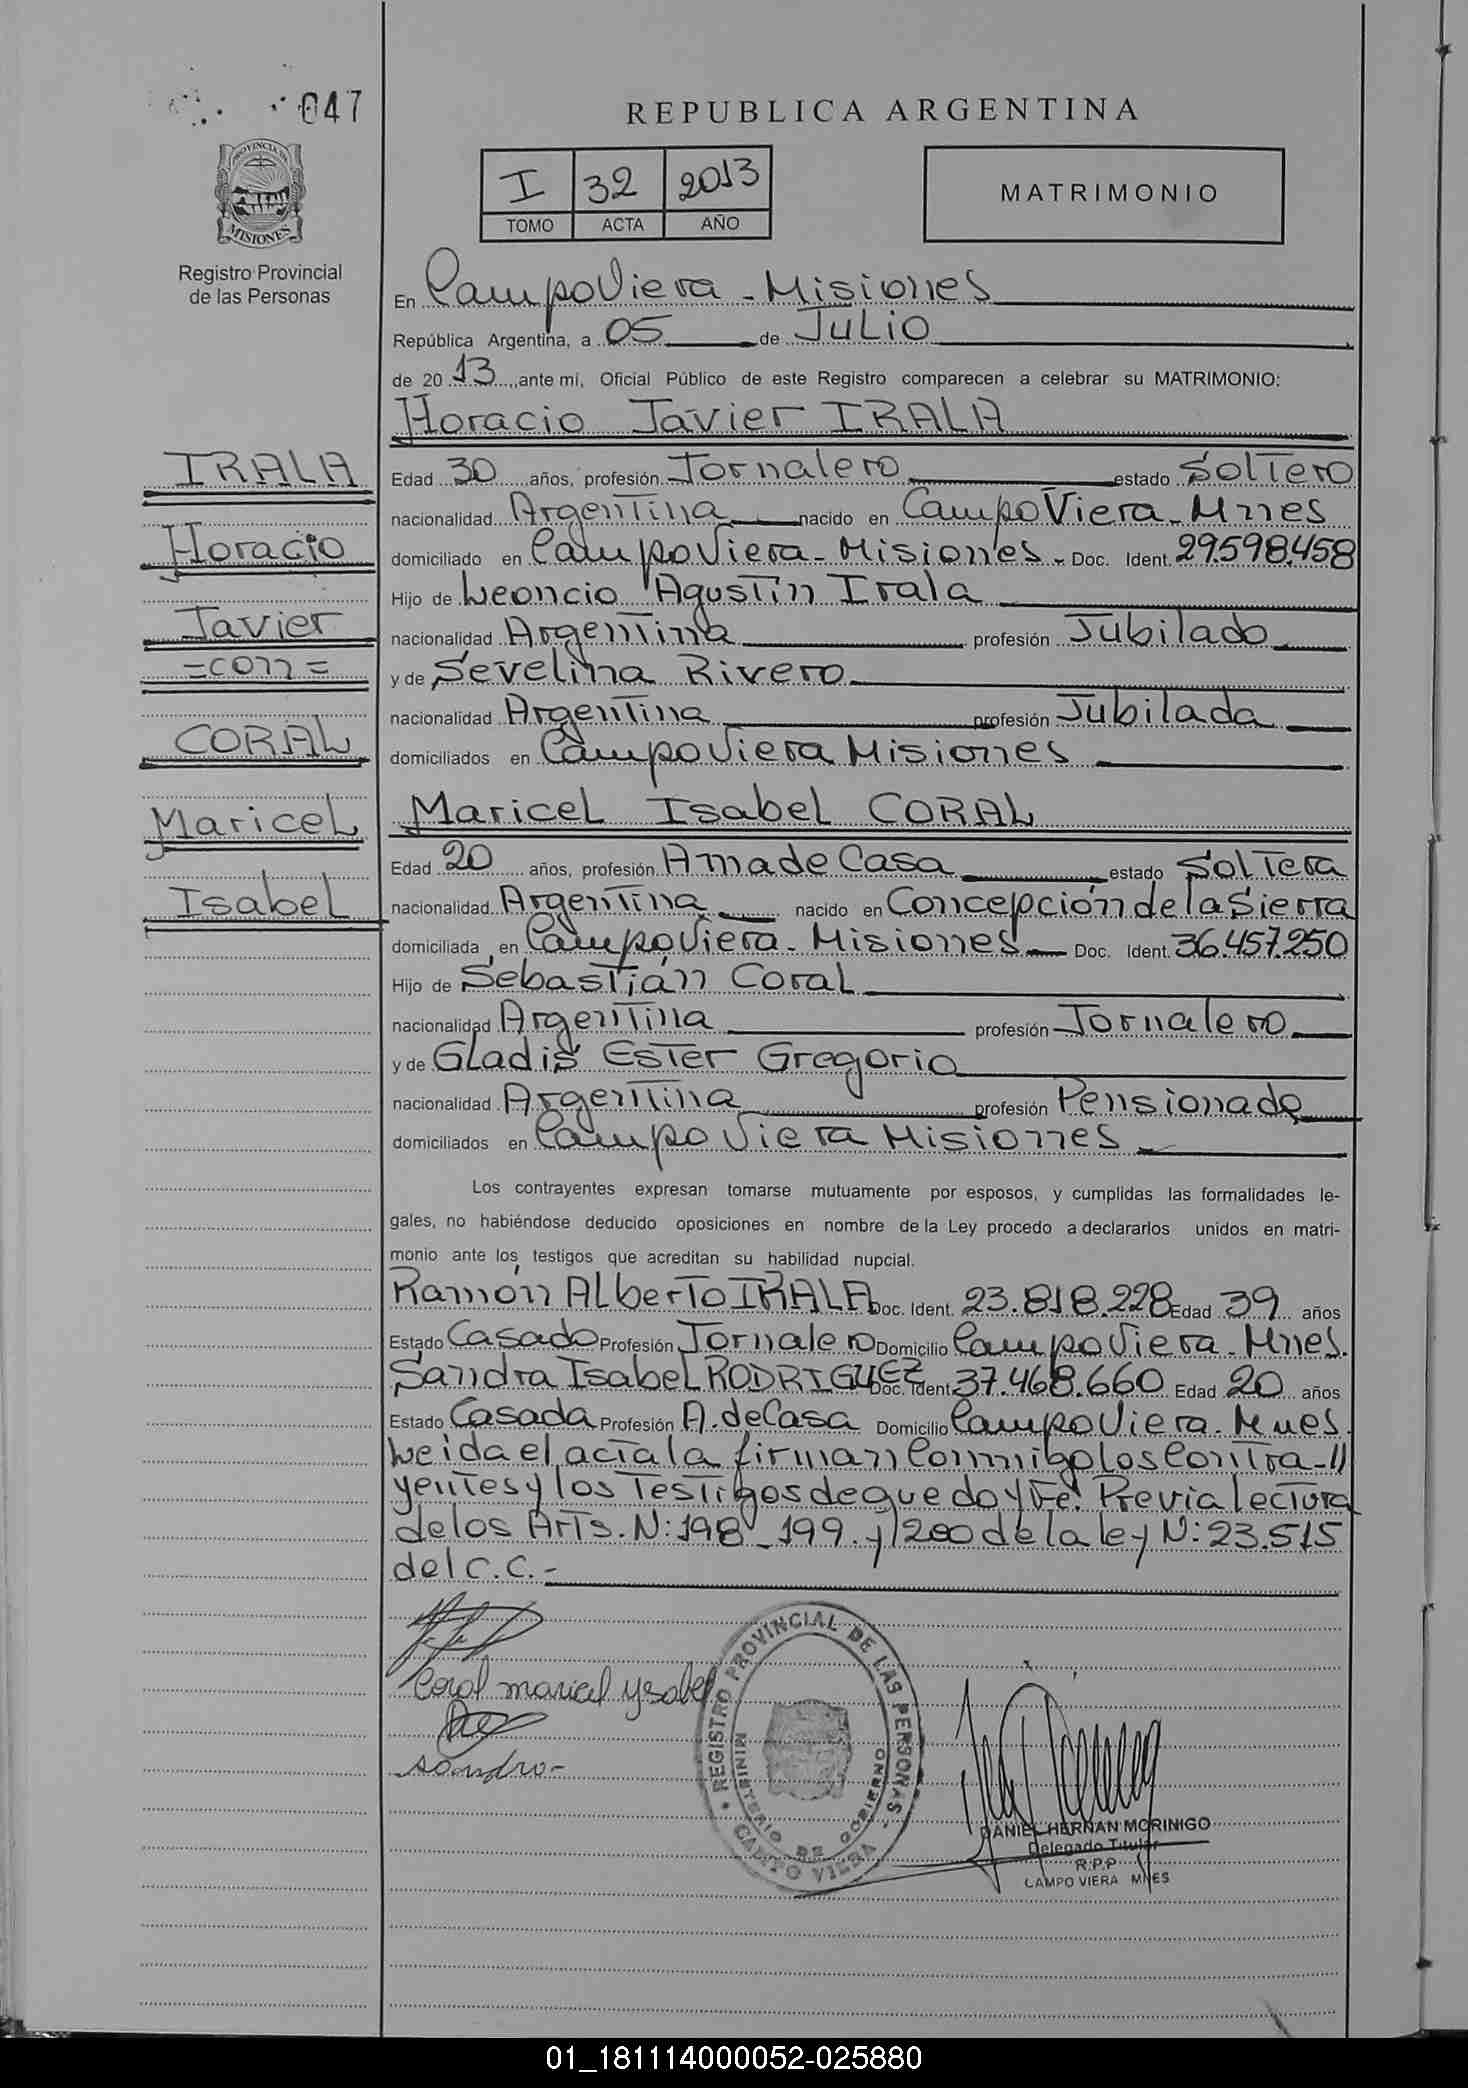 047
REPUBLICA ARGENTINA
PROVINCIA DE
MISIONES
Registro Provincial
de las Personas
I 32 2013
TOMO ACTA AÑO
MATRIMONIO
En Campo Viera - Misiones
República Argentina, a 05 de Julio
de 20 13, ante mi, Oficial Público de este Registro comparecen a celebrar su MATRIMONIO:
Horacio Javier IRALA
IRALA
Horacio
Javier
=con=
CORAL
Maricel
Isabel
Edad 30 años, profesión Jornalero estado Soltero
nacionalidad Argentina nacido en Campo Viera - Mnes
domiciliado en Campo Viera - Misiones - Doc. Ident. 29.598.458
Hijo de Leoncio Agustín Irala
nacionalidad Argentina profesión Jubilado
y de Sevelina Rivero
nacionalidad Argentina profesión Jubilada
domiciliados en Campo Viera Misiones
Maricel Isabel CORAL
Edad 20 años, profesión Ama de Casa estado Soltera
nacionalidad Argentina nacido en Concepción de la Sierra
domiciliada en Campo Viera - Misiones Doc. Ident. 36.457.250
Hijo de Sebastián Coral
nacionalidad Argentina profesión Jornalero
y de Gladis Ester Gregorio
nacionalidad Argentina profesión Pensionada
domiciliados en Campo Viera Misiones
Los contrayentes expresan tomarse mutuamente por esposos, y cumplidas las formalidades le-
gales, no habiéndose deducido oposiciones en nombre de la Ley procedo a declararlos unidos en matri-
monio ante los testigos que acreditan su habilidad nupcial.
Ramón Alberto IRALA Doc. Ident. 23.818.228 Edad 39 años
Estado Casado Profesión Jornalero Domicilio Campo Viera - Mnes.
Sandra Isabel RODRIGUEZ Doc. Ident 37.468.660 Edad 20 años
Estado Casada Profesión A. de Casa Domicilio Campo Viera - Mnes.
Leida el acta la firman conmigo los contra-//
yentes y los Testigos de que doy Fe. Previa lectura
de los Arts. N: 198 - 199 - y 200 de la ley N: 23.515
del C.C.-
Coral maricel ysabel
sandra-
REGISTRO PROVINCIAL DE LAS PERSONAS
MINISTERIO DE GOBIERNO
CAMPO VIERA
DANIEL HERNAN MORINIGO
Delegado Titular
R.P.P
CAMPO VIERA MNES
01_181114000052-025880